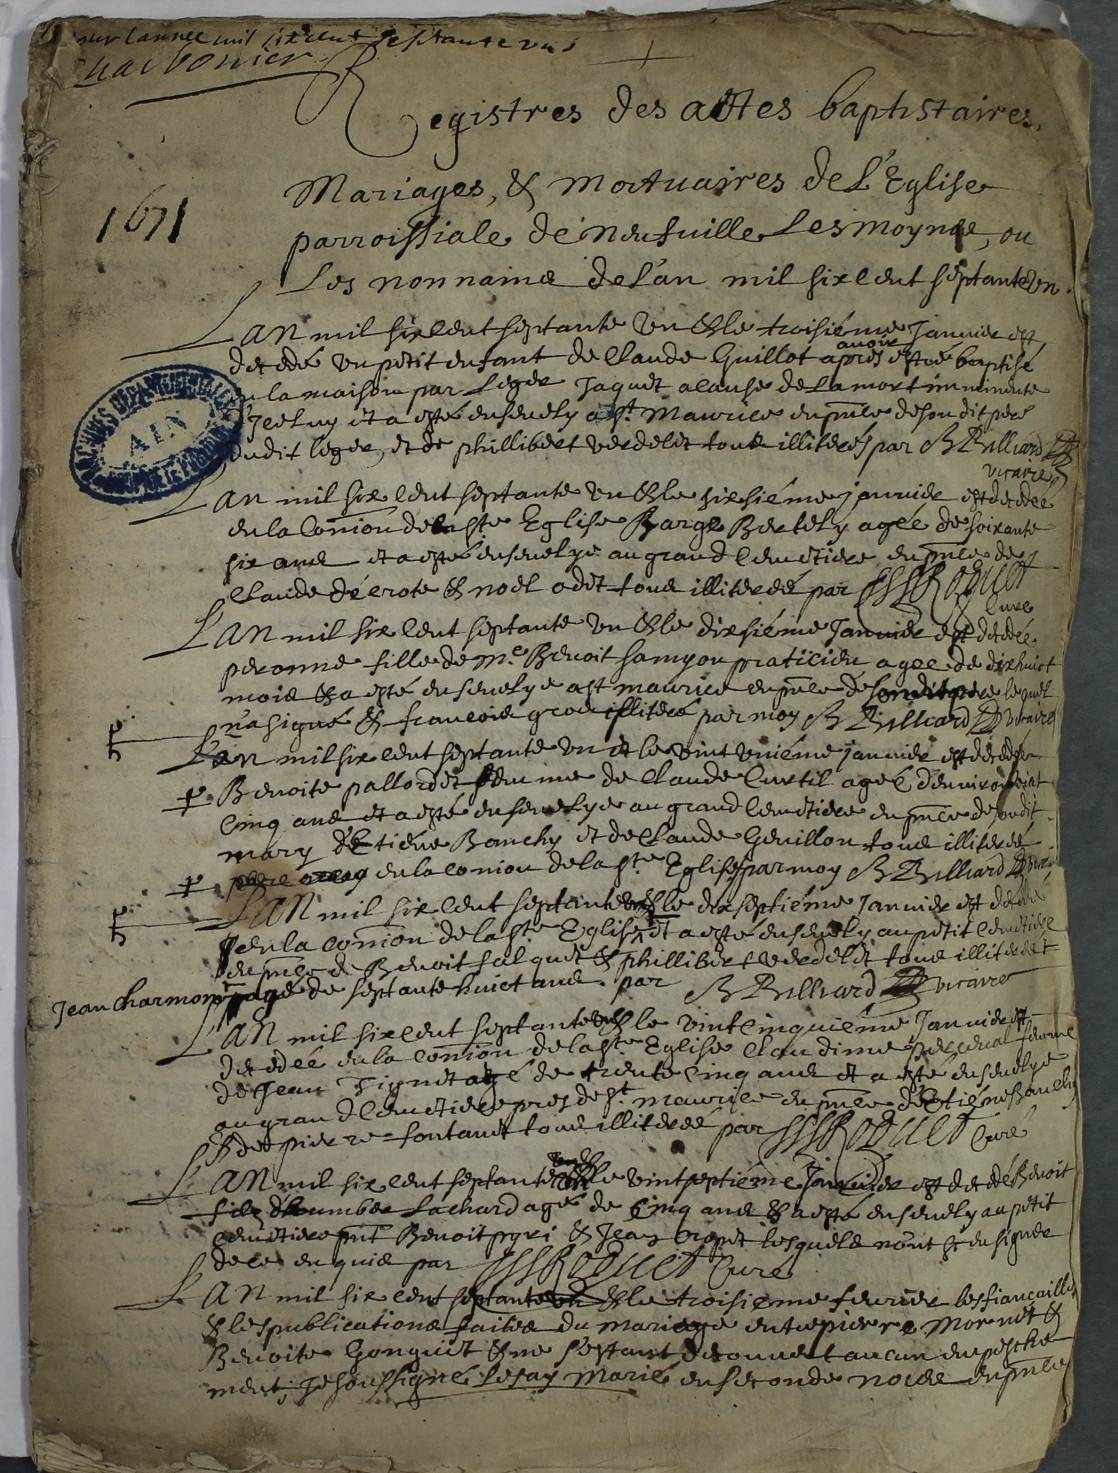 pour l'annee mil six cent septante un
Charbonier
Registres des actes baptistaires,
Mariages, & mortuaires de L'Eglise
1671
parroissiale de Neufuille Les moynes, ou
Les nonnains de l'an mil six cent septante un.
L'an mil six cent septante un & le troisiéme Januier est
decedé un petit enfant de Claude Guillot apres auoir esté baptisé
en la maison par Leger Jaquet a cause de la mort imminente
d'iceluy et a esté enseuely a St. Maurice en pnce de son dit pere
dudit leger, et de phillibert verdelet tous illiterés par B Billiard
vicaire
ARCHIVES DEPARTEMENTALES
AIN
L'an mil six cent septante un & le sixsiéme januier est decedée
en la Conion de la ste Eglise Berthely agée de soixante
six ans et a esté enseuelye au grand Cemetiere en pnce de
Claude decrote & noel odet tous illiterés par Roduet
Curé
L'an mil six cent septante un & le dixsiéme Januier est decedée
peronne fille de me. Benoit samyon praticien agee de dixhuict
mois & a esté enseuelye a st maurice en pnce de sondit pere lequel
n'a signé & francois gros illiteré par moy B Billiard vicaire
L'an mil six cent septante un et le vint uniéme januier est decedée
Benoite pallordet femme de Claude Curtil agée d'enuiron
cinq ans et a esté enseuelye au grand Cemetiere en pnce de sondit
mary d'Etiene Bonchy et de Claude Geuillon tous illiterés
en la conion de la ste. Eglise par moy B Billiard
L'an mil six cent septante un & le dixseptiéme Januier est decedé
en la conion de la ste Eglise et a esté enseuely au petit Cemetiere
en pnce de Benoit falquet & phillibert verdelet tous illiterés et
Jean Charmont agé de septante huict ans. par B Billiard vicaire
L'an mil six cent septante un & le vint cinquiéme Januier est
decedée en la conion de la ste Eglise Claudine femme
de Jean Tignet agé de trente cinq ans et a esté enseuelye
au grand Cemetiere pres de st. maurice en pnce d'Etiéne Bonchy
& de pierre fontanet tous illiterés par Roduet Curé
L'an mil six cent septante un & le vint septiéme Januier est decedé Benoit
fils d'humber Lachard agé de cinq ans & a esté enseuely au petit
cemetiere pnt Benoit pyri & Jean lesquels n'ont sceu signer
de ce enquis par Roduet Curé
L'an mil six cent septante un & le troisieme feurier les fiançailles
& les publications faites du mariage entre pierre Mornet &
Benoite Gonguet & ne s'estant decouuert aucun empesche
ment, Je soussigné les ay Marié en seconde noces en pnce